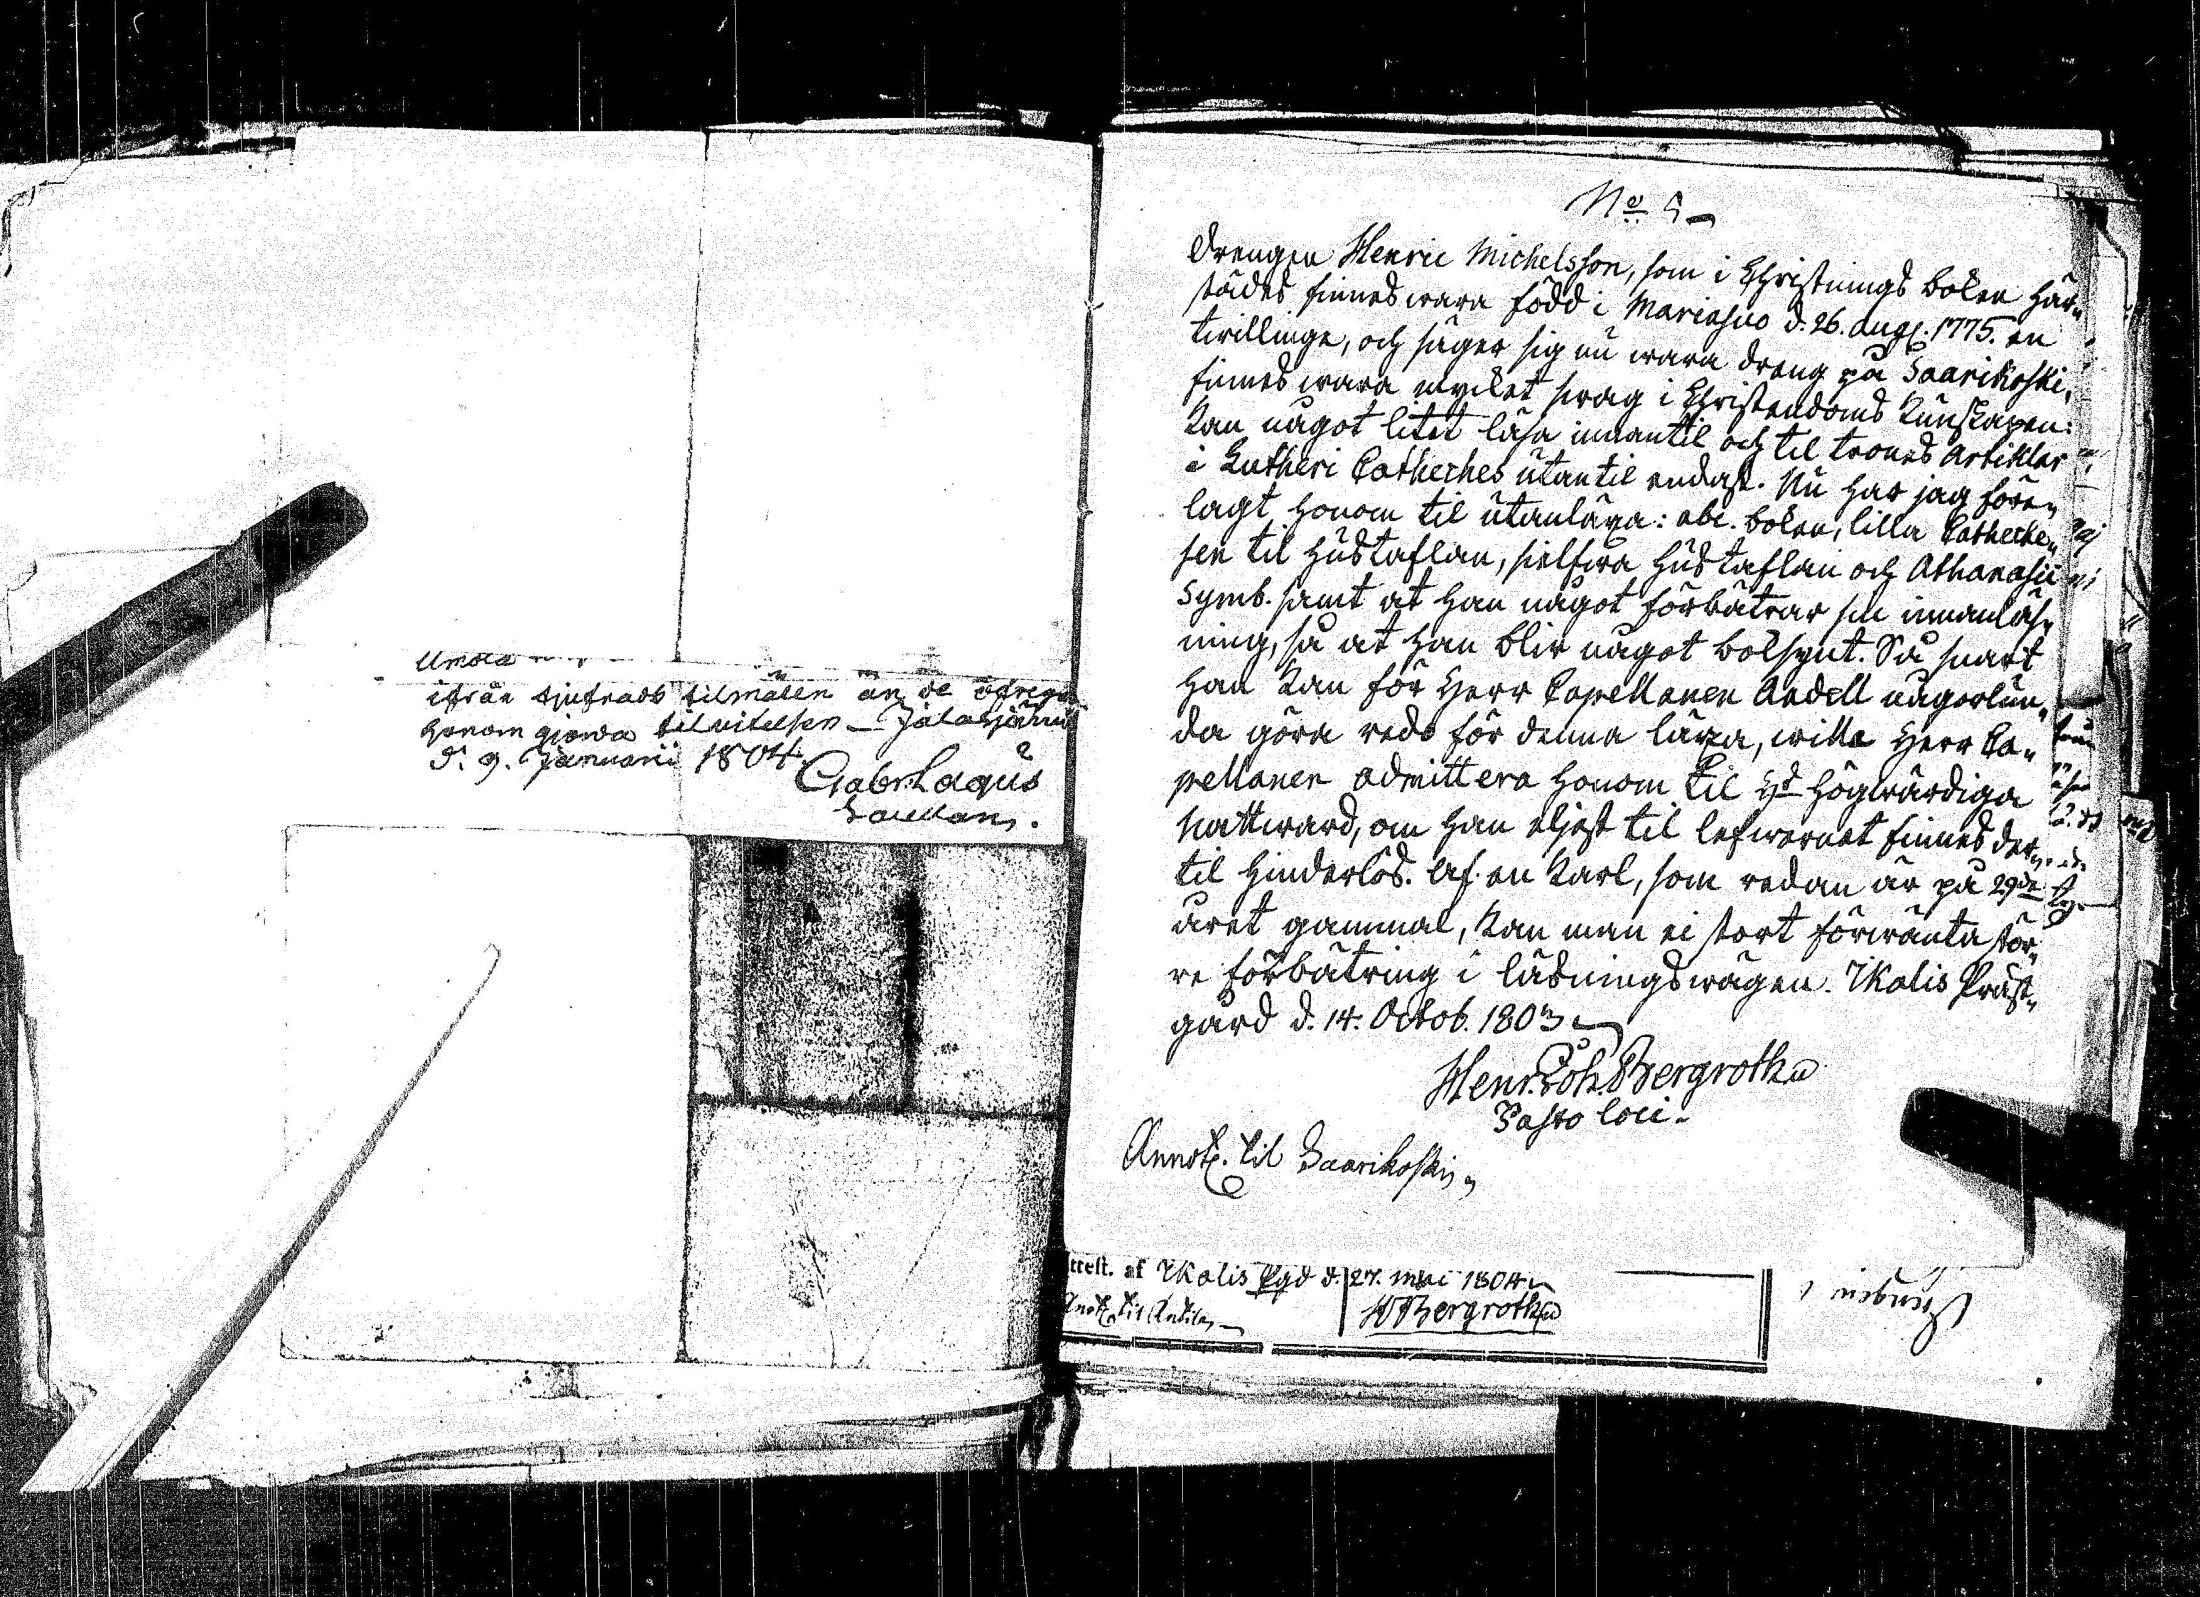 ifrån tjufnads tilmälen än de öfriga
honom gjorda tilvitelsen _ Jalasjärvi
d. 9. Januarii 1804.
Gabr. Lagus
Nº 5
Drengen Henric Michelsson, som i Christnings boken här„
städes finnes wara född i Mariasuo d. 26. Aug. 1775. en
twillinge, och säger sig nu wara dreng på Saarikoski,
finnes wara mycket swag i Christendoms Kunskapen:
Kan något litet läsa innantil och til trones Artiklar
i Lutheri Catheches utantil endast. Nu har jag före„
lagt honom til utanläxa: abc. boken, lilla Catheche„
sen til Hustaflan, sielfwa Hustaflan och Athanasii
Symb. samt at han något förbätrar sin innanläs„
ning, så at han blir något bokspint. Så snart
han Kan för Herr Capellanen Aedell någorlun„
da göra redo för denna läxa, wille Herr Ca„
pellanen admittera honom til Hd Högwärdiga
Nattward, om han eljest til lefwernet finnes der„
til hinderlös. Af en Karl, som redan är på 29de
året gammal, Kan man ei stort förwänta stör„
re förbätring i läsningswägen. Ikalis Präst„
gård d. 14. Octob. 1803
Henr. Joh. Bergroth
Pastor loci.
Annot. til Saarikoski,
ttest. af Ikalis Pgd d. 27. Mai 1804
Anot. til Antila,
HBergroth
Drengen